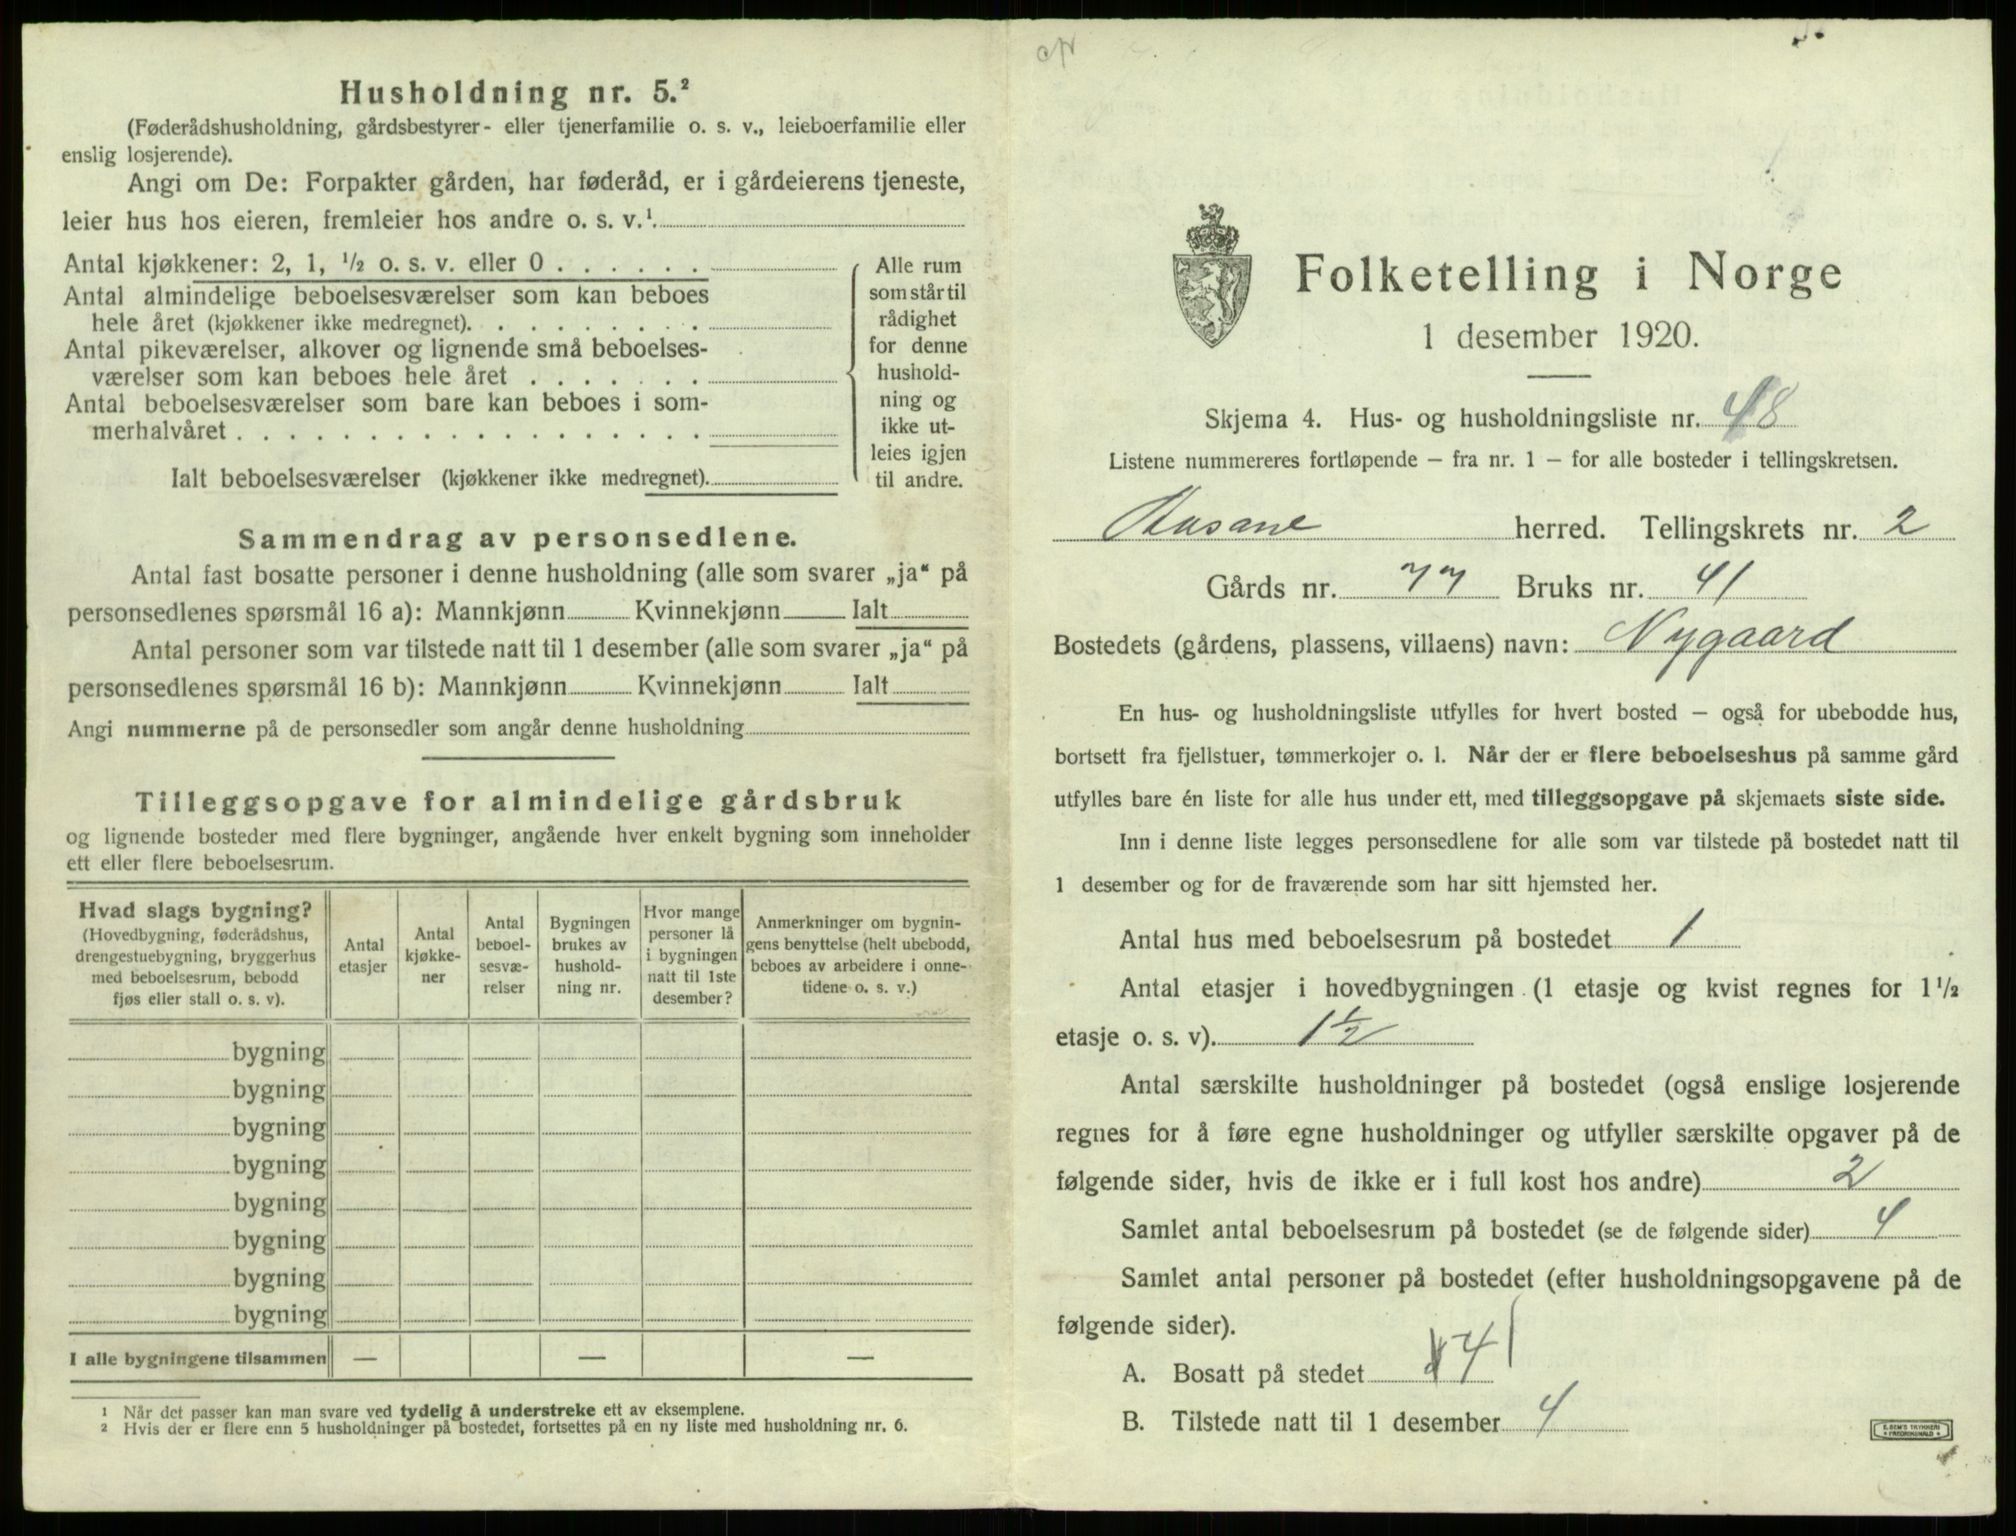 Husholdning nr. 5.²
(Føderådshusholdning, gårdsbestyrer- eller tjenerfamilie o. s. v., leieboerfamilie eller
enslig losjerende).
Angi om De: Forpakter gården, har føderåd, er i gårdeierens tjeneste,
leier hus hos eieren, fremleier hos andre o. s. v.¹
Antal kjøkkener: 2, 1, ½ o. s. v. eller 0
Antal almindelige beboelsesværelser som kan beboes
hele året (kjøkkener ikke medregnet).
Antal pikeværelser, alkover og lignende små beboelses-
værelser som kan beboes hele året
Antal beboelsesværelser som bare kan beboes i som-
merhalvåret
Ialt beboelsesværelser (kjøkkener ikke medregnet).
Alle rum
som står til
rådighet
for denne
hushold-
ning og
ikke ut-
leies igjen
til andre.
Sammendrag av personsedlene.
Antal fast bosatte personer i denne husholdning (alle som svarer „ja“ på
personsedlenes spørsmål 16 a): Mannkjønn Kvinnekjønn Ialt
Antal personer som var tilstede natt til 1 desember (alle som svarer „ja“ på
personsedlenes spørsmål 16 b): Mannkjønn Kvinnekjønn Ialt
Angi nummerne på de personsedler som angår denne husholdning
Tilleggsopgave for almindelige gårdsbruk
og lignende bosteder med flere bygninger, angående hver enkelt bygning som inneholder
ett eller flere beboelsesrum.
Hvad slags bygning?
(Hovedbygning, føderådshus,
drengestuebygning, bryggerhus
med beboelsesrum, bebodd
fjøs eller stall o. s. v).
Antal
etasjer
Antal
kjøkke-
ner
Antal
beboel-
sesvæ-
relser
Bygningen
brukes av
hushold-
ning nr.
Hvor mange
personer lå
i bygningen
natt til 1ste
desember?
Anmerkninger om bygnin-
gens benyttelse (helt ubebodd,
beboes av arbeidere i onne-
tidene o. s. v.)
bygning
bygning
bygning
bygning
bygning
bygning
bygning
bygning
I alle bygningene tilsammen — — —
¹ Når det passer kan man svare ved tydelig å understreke ett av eksemplene.
² Hvis der er flere enn 5 husholdninger på bostedet, fortsettes på en ny liste med husholdning nr. 6.
Folketelling i Norge
1 desember 1920.
Skjema 4. Hus- og husholdningsliste nr. 48
Listene nummereres fortløpende – fra nr. 1 – for alle bosteder i tellingskretsen.
Aasane herred. Tellingskrets nr. 2
Gårds nr. 77 Bruks nr. 41
Bostedets (gårdens, plassens, villaens) navn: Nygaard
En hus- og husholdningsliste utfylles for hvert bosted – også for ubebodde hus,
bortsett fra fjellstuer, tømmerkojer o. l. Når der er flere beboelseshus på samme gård
utfylles bare én liste for alle hus under ett, med tilleggsopgave på skjemaets siste side.
Inn i denne liste legges personsedlene for alle som var tilstede på bostedet natt til
1 desember og for de fraværende som har sitt hjemsted her.
Antal hus med beboelsesrum på bostedet 1
Antal etasjer i hovedbygningen (1 etasje og kvist regnes for 1½
etasje o. s. v). 1½
Antal særskilte husholdninger på bostedet (også enslige losjerende
regnes for å føre egne husholdninger og utfyller særskilte opgaver på de
følgende sider, hvis de ikke er i full kost hos andre) 2
Samlet antal beboelsesrum på bostedet (se de følgende sider) 4
Samlet antal personer på bostedet (efter husholdningsopgavene på de
følgende sider).
A. Bosatt på stedet 4
B. Tilstede natt til 1 desember 4